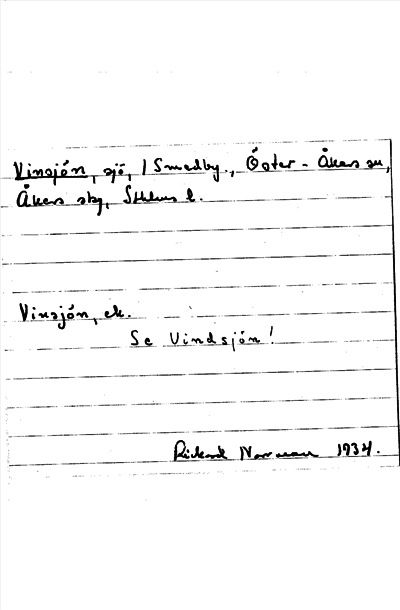 Vinsjön, sjö, / Smedby., Öster-Åkers sn,
Åkers sbg, Sthlms l.
Vinsjön, ek.
Se Vindsjön!
Rickard Norman 1934.